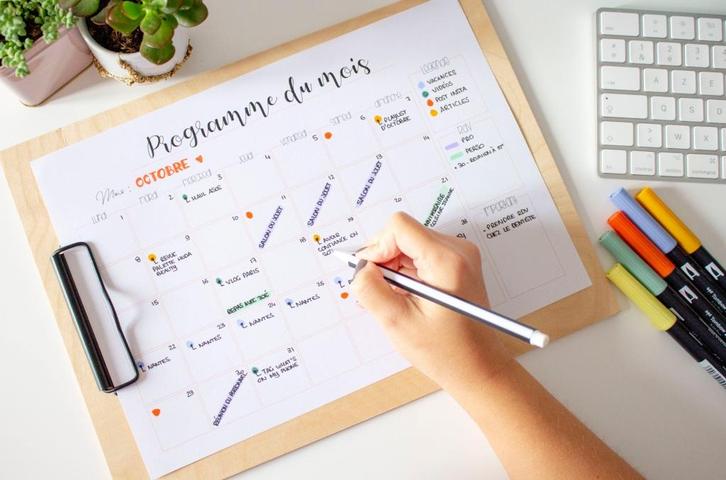 Programme du mois
Mois : OCTOBRE
lundi
mardi
mercredi
jeudi
vendredi
samedi
dimanche
1
2
3
HAUL ASOS
4
5
6
7
PLAYLIST
D'OCTOBRE
8
9
REVUE
PALETTE HUDA
BEAUTY
10
11
SALON DU JOUET
12
SALON DU JOUET
13
SALON DU JOUET
14
15
16
17
VLOG PARIS
18
19
AVOIR
CONFIANCE EN
20
21
ANNIVERSAIRE
22
NANTES
23
NANTES
24
REPAS AVEC ZOÉ
NANTES
NANTES
28
29
30
31
TAG WHAT'S
ON MY PHONE
LÉGENDE
VACANCES
VIDÉOS
POST INSTA
ARTICLES
RDV
PRO
PERSO
IMPORTANT
- PRENDRE RDV
CHEZ LE DENTISTE